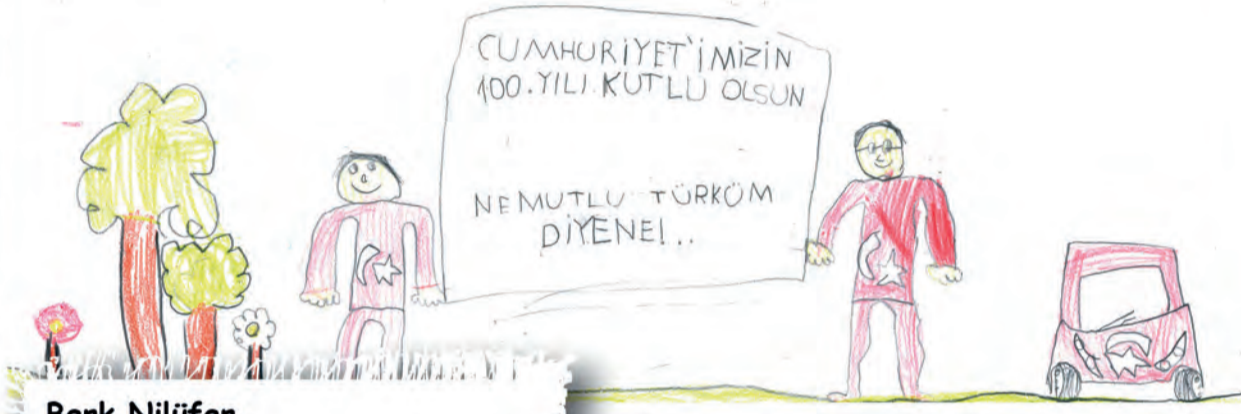 CUMHURİYET'İMİZİN
100.YILI KUTLU OLSUN
NE MUTLU TÜRKÜM
DİYENE!..
Berk Nilüfer